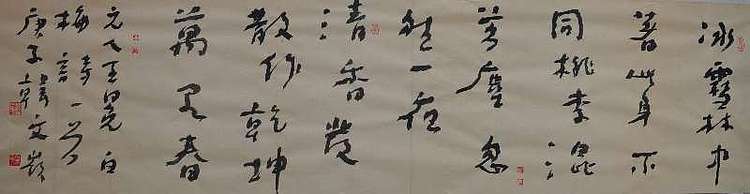 冰雪林中
著此身不
同桃李混
芳塵忽
然一夜
清香發
散作乾坤
萬里春
元人王冕白
梅詩一首
庚子文